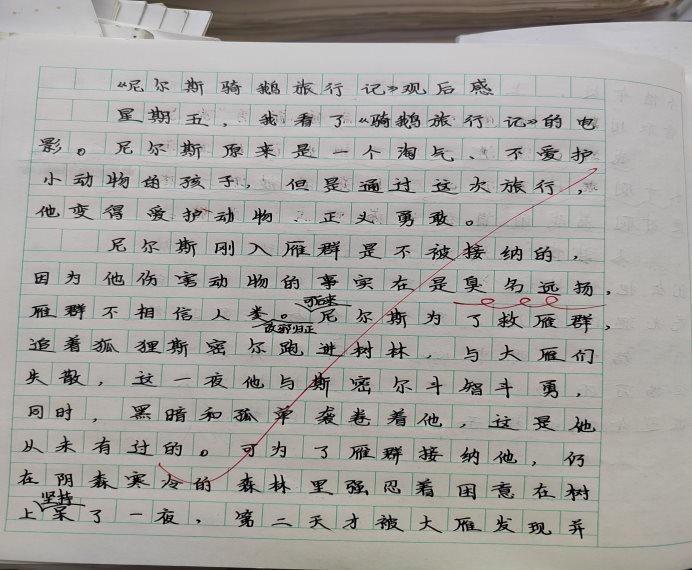 《尼尔斯骑鹅旅行记》观后感
星期五，我看了《骑鹅旅行记》的电
影。尼尔斯原来是一个淘气、不爱护
小动物的孩子，但是通过这次旅行，
他变得爱护动物、正义勇敢。
尼尔斯刚入雁群是不被接纳的，
因为他伤害动物的事实在是臭名远扬，
雁群不相信人类。尼尔斯为了救雁群，
改邪归正
追着狐狸斯密尔跑进树林，与大雁们
失散，这一夜他与斯密尔斗智斗勇，
同时，黑暗和孤单袭卷着他，这是他
从未有过的。可为了雁群接纳他，仍
在阴森寒冷的森林里强忍着困意在树
坚持
上呆了一夜，第二天才被大雁发现并